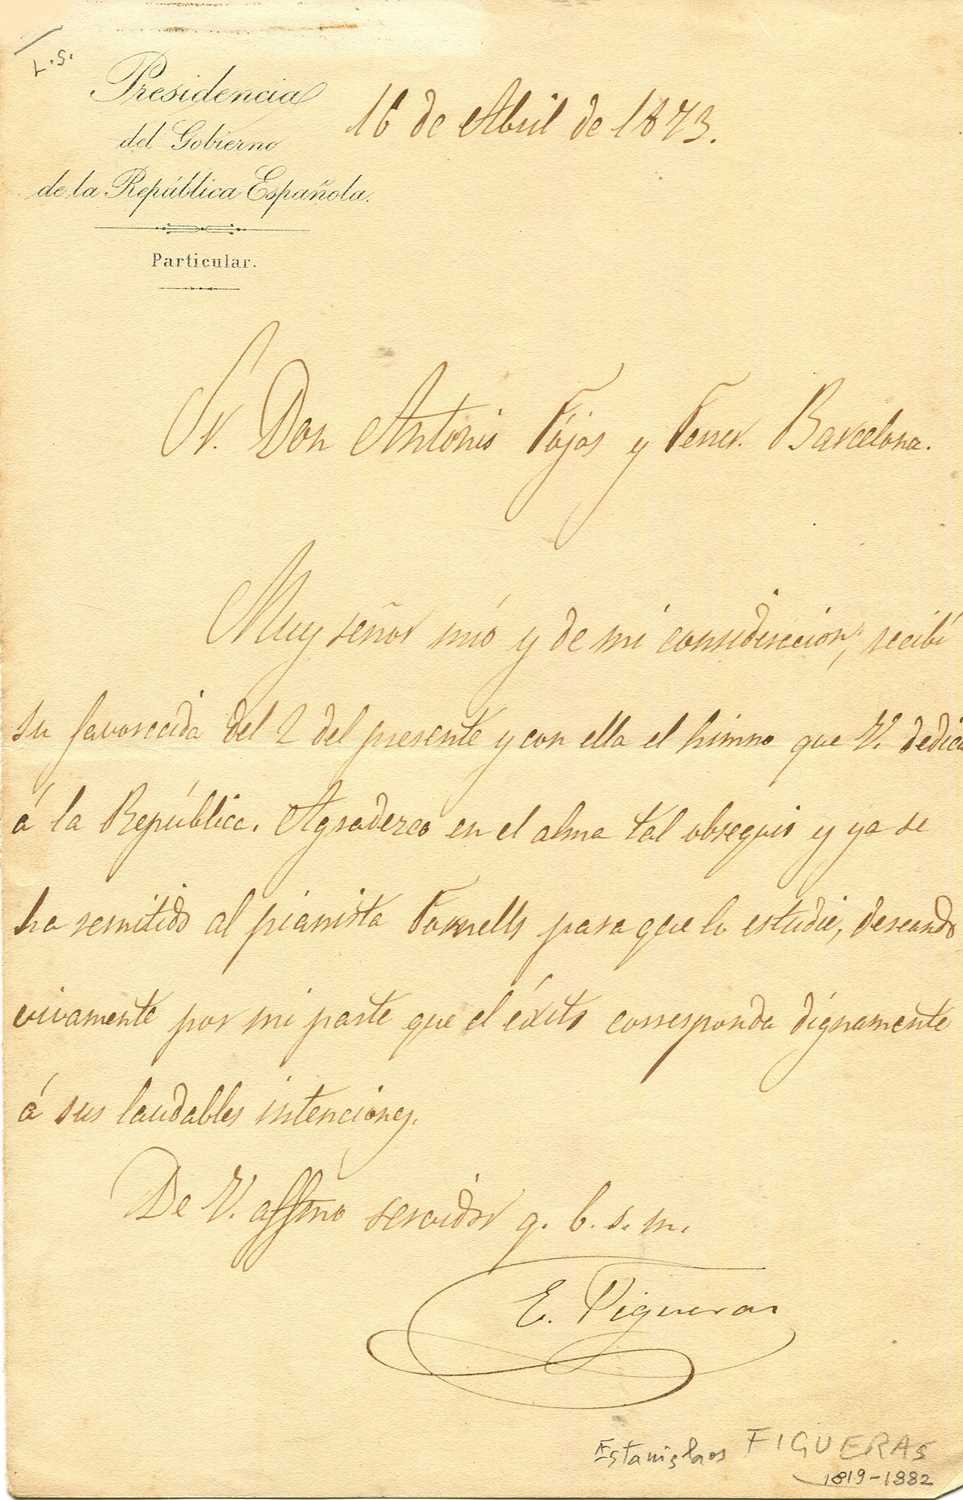 L.S.
Presidencia
del Gobierno
de la República Española.
Particular.
16 de Abril de 1873.
Sr. Don Antonio Fójas y Ferrer. Barcelona.
Muy señor mió y de mi consideracion; recibí
su favorecida del 2 del presente y con ella el himno que V. dedica
á la República. Agradezco en el alma tal obsequio y ya se
ha remitido al pianista para que lo estudie, deseando
vivamente por mi parte que el éxito corresponda dignamente
á sus laudables intenciones.
De V. affmo servidor q. b. s. m.
E. Figueras
Estanislaos FIGUERAS
1819-1882